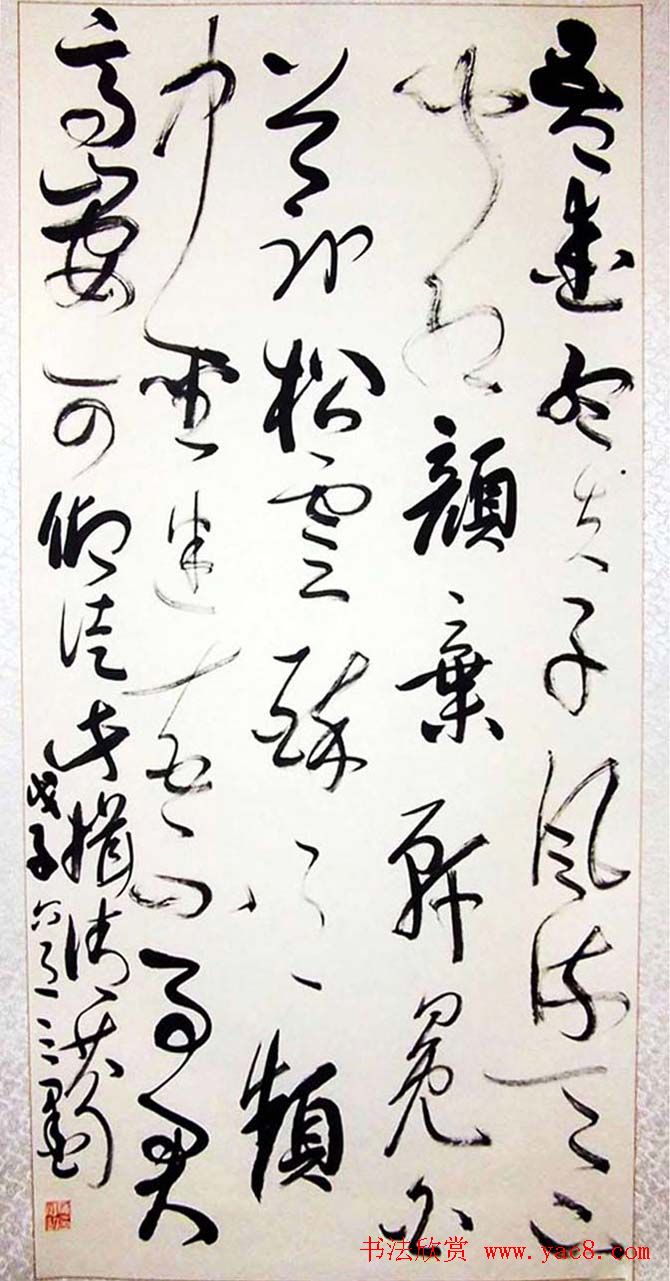 吾愛孟夫子風流天下
聞紅顏棄軒冕白
首臥松雲醉月頻
中聖迷花不事君
高山安可仰徒此揖清芬
戊子
书法欣赏 www.yac8.com